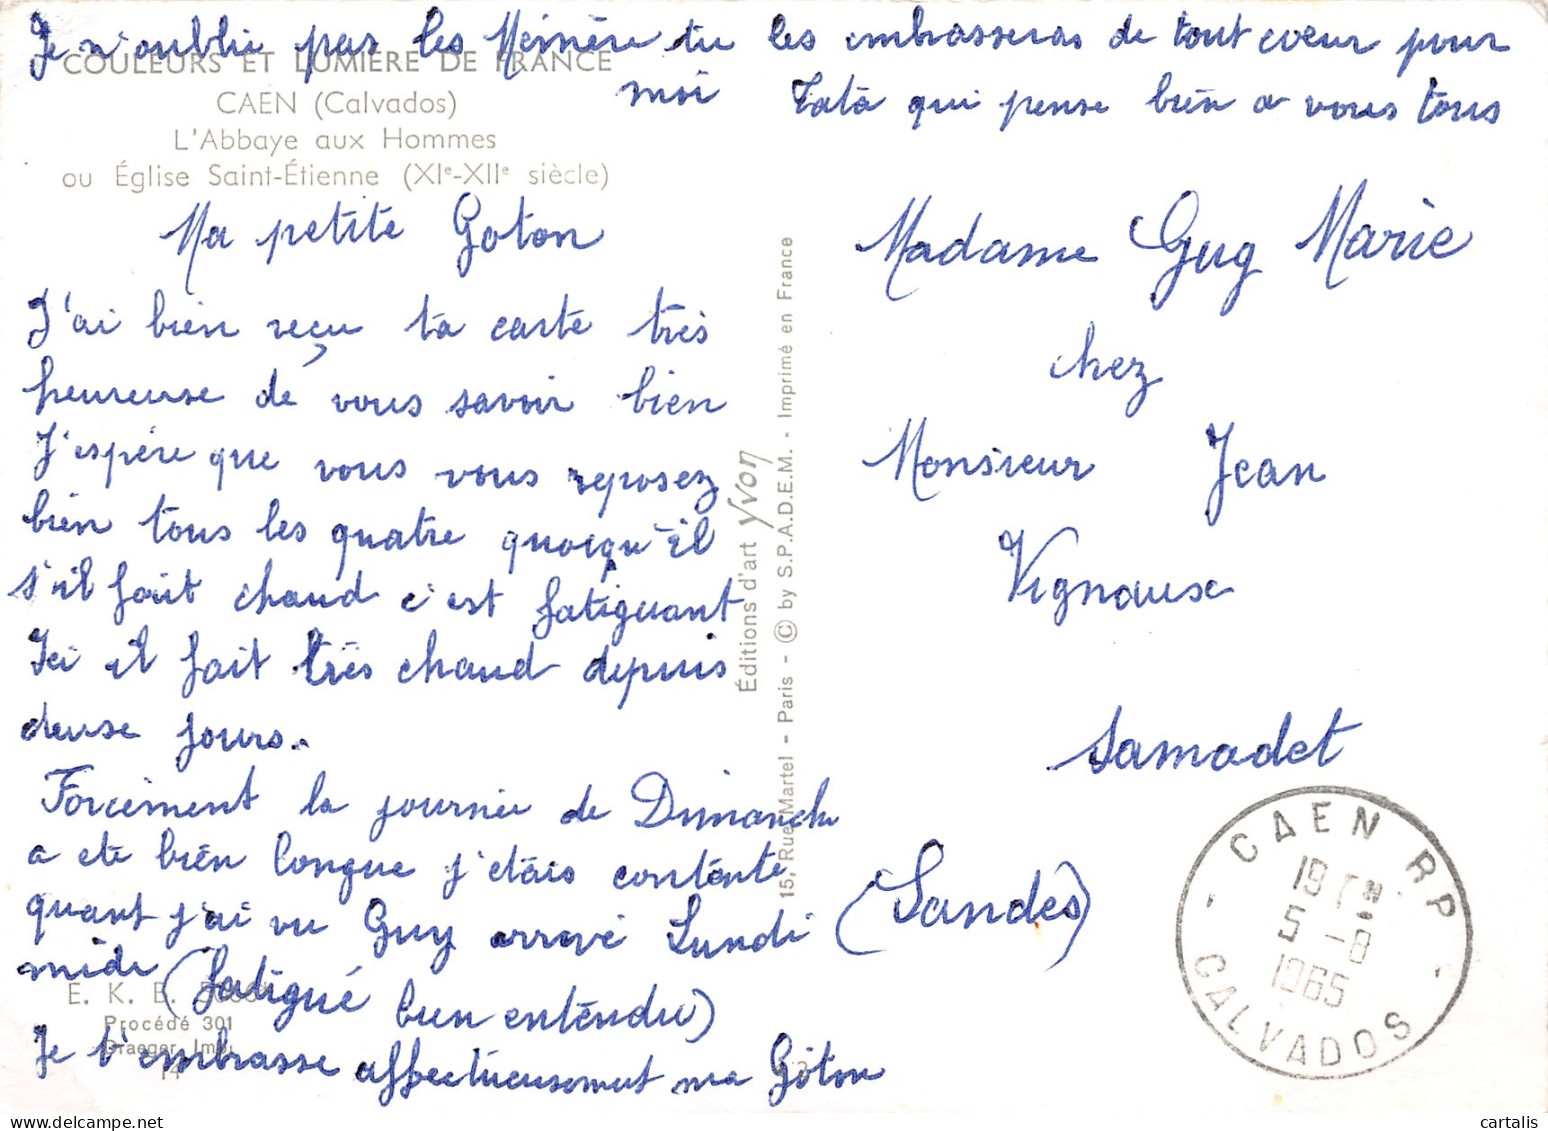 Je n'oublie pas les Mémère tu les embrasseras de tout coeur pour
moi Tata qui pense bien a vous tous
COULEURS ET LUMIÈRE DE FRANCE
CAEN (Calvados)
L'Abbaye aux Hommes
ou Église Saint-Étienne (XIe-XIIe siècle)
Ma petite Goton
J'ai bien reçu ta carte très
heureuse de vous savoir bien
J'espère que vous vous reposez
bien tous les quatre quoiqu'il
s'il fait chaud c'est fatiguant
Ici il fait très chaud depuis
deux jours.
Forcément la journée de Dimanche
a été bien longue j'étais contente
quant j'ai vu Guy arrivé Lundi
midi (fatigué bien entendu)
Je t'embrasse affectueusement ma Goton
E. K. B.
Procédé 301
Draeger Imp.
14
Éditions d'art Yvon
15, Rue Martel - Paris - © by S.P.A.D.E.M. - Imprimé en France
Madame Guy Marie
chez
Monsieur Jean
Vignaux
Samadet
(Landes)
CAEN RP
19H
5 -8
1965
CALVADOS
cartalis